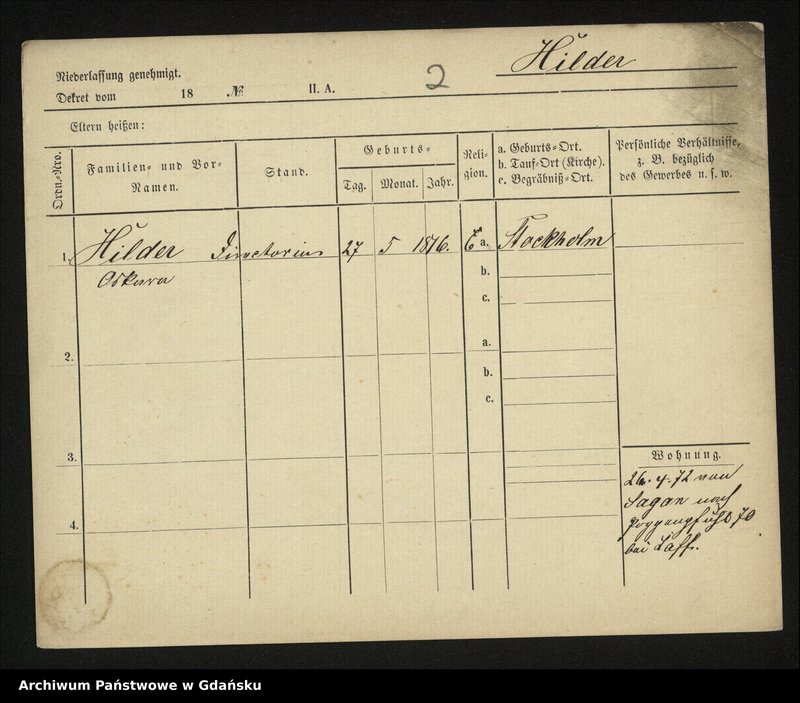 Hilder
Niederlassung genehmigt.
2
Dekret vom 18 № II. A.
Eltern heißen:
Ordn.-Nro.
Familien- und Vor-
Namen.
Stand.
Geburts-
Tag.
Monat.
Jahr.
Reli-
gion.
a. Geburts-Ort.
b. Tauf-Ort (Kirche).
c. Begräbniß-Ort.
Persönliche Verhältnisse,
z. B. bezüglich
des Gewerbes u. s. w.
1. Hilder 27 5 1816. a. Stockholm
b.
c.
2.
a.
b.
c.
3.
4.
Wohnung.
26. 4. 72 von
Sagan nach
Poggenpfuhl 70
bei